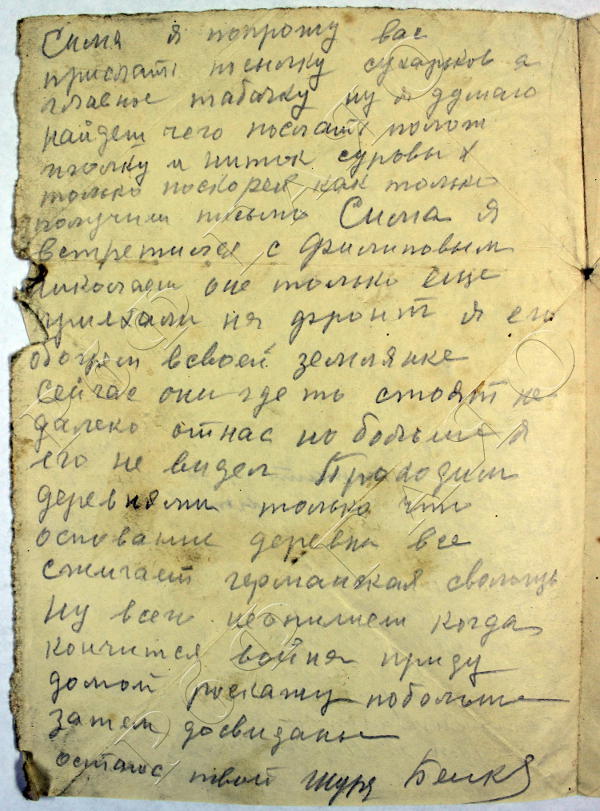 Сима я попрошу вас
прислать сухарьков а
главное табачку ну я думаю
найдеш чего послать полож
иголку и ниток суровых
только поскорея как только
получиш письмо Сима я
встретился с Филиповым
Николаем оне только еще
приехали на фронт я его
обогрел всвоей землянке
сейчас они где то стоят не
далеко отнас но больше я
его не видел Проходим
деревнями только что
основание деревни все
сжигает германская сволочь
Ну всего неопишеш когда
кончится война приду
домой роскажу побольше
затем досвидание
остаюс твой Шура